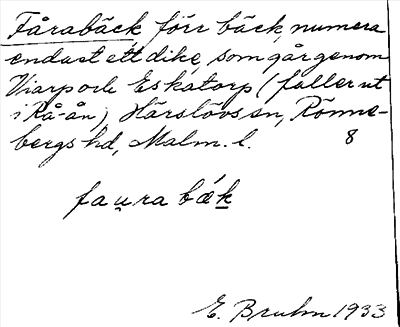 Fårabäck förr bäck, numera
endast ett dike, som går genom
Viarp och Eskatorp (faller ut
i Rå-ån), Härslövs sn, Rönne-
bergs hd, Malm. l. 8
faurabæk
E. Bruhn 1933